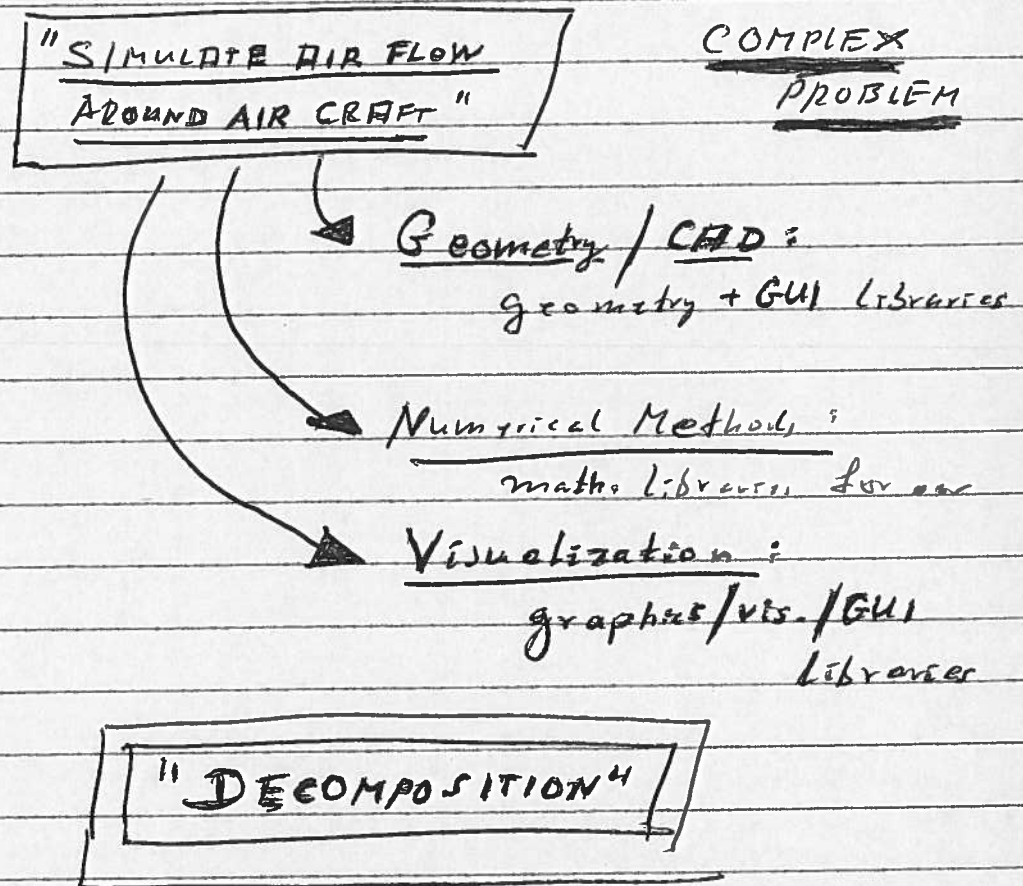 "SIMULATE AIR FLOW
AROUND AIR CRAFT"
COMPLEX
PROBLEM
Geometry / CAD:
geometry + GUI libraries
Numerical Methods:
maths libraries for
Visualization:
graphics/vis./GUI
libraries
"DECOMPOSITION"